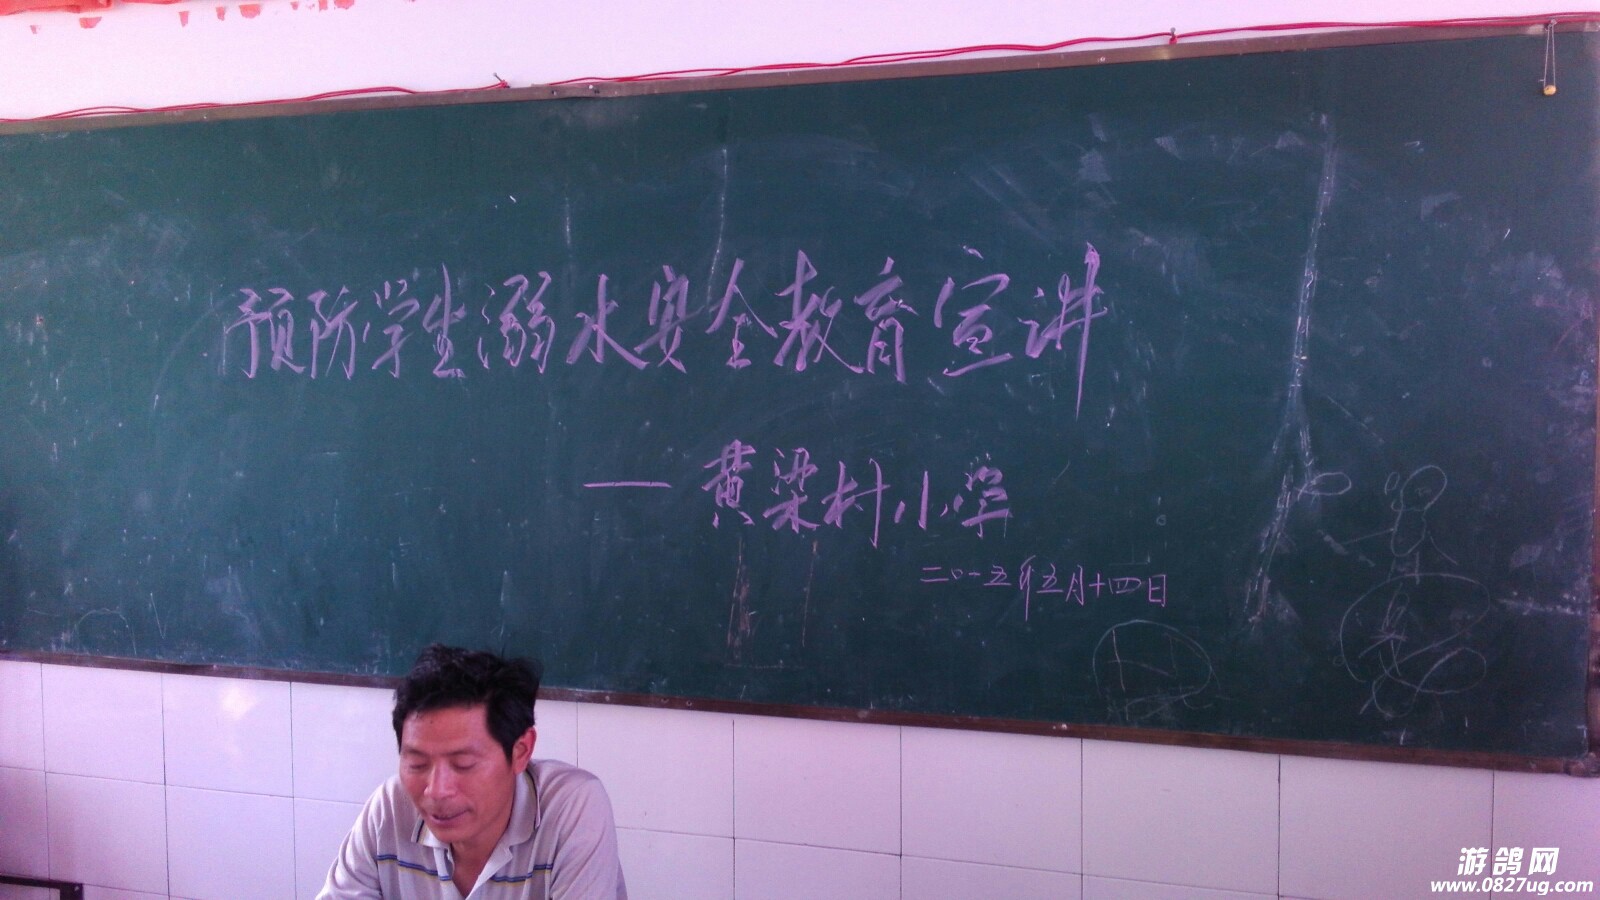 预防学生溺水安全教育宣讲
——黄梁村小学
二〇一五年五月十四日
游鸽网
www.0827ug.com